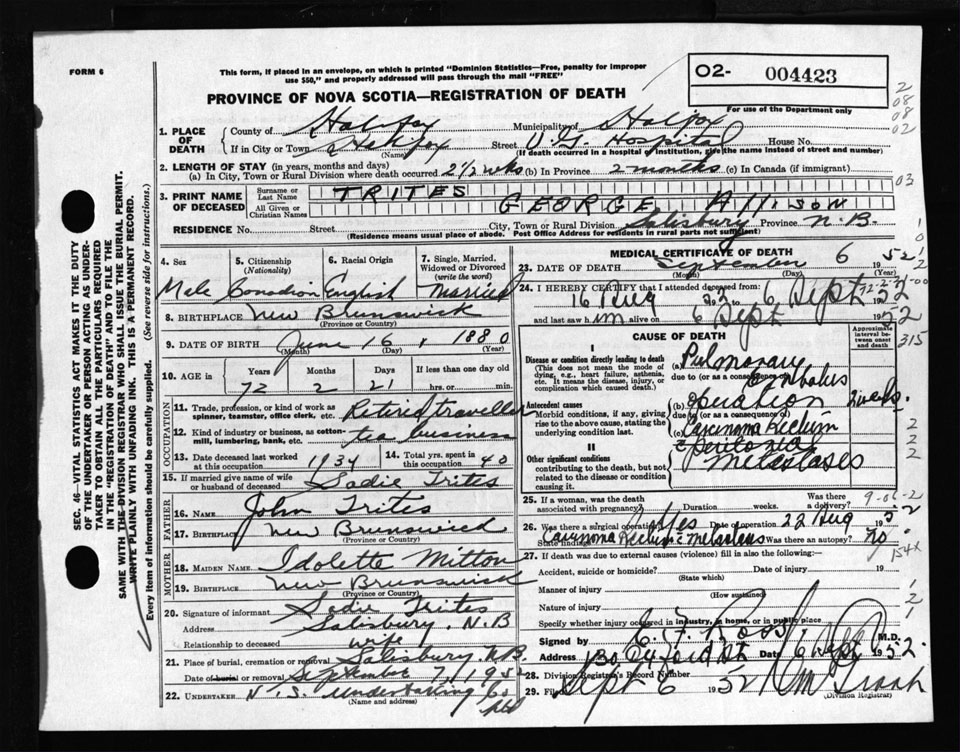 FORM 6
This form, if placed in an envelope, on which is printed "Dominion Statistics—Free, penalty for improper
use $50," and properly addressed will pass through the mail "FREE"
02- 004423
PROVINCE OF NOVA SCOTIA—REGISTRATION OF DEATH
For use of the Department only
2
08
08
02
1. PLACE OF DEATH
County of Halifax Municipality of Halifax
If in City or Town Halifax (Name) Street V.G. Hospital House No.
(If death occurred in a hospital or institution, give the name instead of street and number)
2. LENGTH OF STAY (in years, months and days)
(a) In City, Town or Rural Division where death occurred 2½ wks (b) In Province 2 months (c) In Canada (if immigrant)
03
3. PRINT NAME OF DECEASED
Surname or Last Name TRITES
All Given or Christian Names GEORGE Allison
RESIDENCE No. Street City, Town or Rural Division Salisbury Province N.B.
(Residence means usual place of abode. Post Office Address for residents in rural parts not sufficient)
4. Sex
5. Citizenship (Nationality)
6. Racial Origin
7. Single, Married, Widowed or Divorced (write the word)
Male Canadian English Married
8. BIRTHPLACE New Brunswick
(Province or Country)
9. DATE OF BIRTH June 16 1880
(Month) (Day) (Year)
10. AGE in
Years Months Days If less than one day
72 2 21 hrs. or min.
OCCUPATION
11. Trade, profession, or kind of work as spinner, teamster, office clerk, etc. Retired traveller
12. Kind of industry or business, as cotton-mill, lumbering, bank, etc. tea business
13. Date deceased last worked at this occupation 1934
14. Total yrs. spent in this occupation 40
15. If married give name of wife or husband of deceased Sadie Trites
FATHER
16. Name John Trites
17. Birthplace New Brunswick
(Province or Country)
MOTHER
18. MAIDEN NAME Idolette Mitton
19. BIRTHPLACE New Brunswick
(Province or Country)
20. Signature of informant Sadie Trites
Address Salisbury, N.B
Relationship to deceased wife
21. Place of burial, cremation or removal Salisbury NB.
Date of burial or removal September 7, 1952
22. UNDERTAKER N.S. Undertaking Co
Ltd
(Name and address)
MEDICAL CERTIFICATE OF DEATH
23. DATE OF DEATH September 6 1952
(Month) (Day) (Year)
24. I HEREBY CERTIFY that I attended deceased from:
16 Aug 52 to 6 Sept 1952
and last saw him alive on 6 Sept 1952
CAUSE OF DEATH
Approximate interval between onset and death
315
I
Disease or condition directly leading to death
(This does not mean the mode of dying, e.g., heart failure, asthenia, etc. It means the disease, injury, or complication which caused death.)
(a) Pulmonary
due to (or as a consequence of) Embolus
Antecedent causes
Morbid conditions, if any, giving rise to the above cause, stating the underlying condition last.
(b) operation 2 weeks.
due to (or as a consequence of)
Carcinoma Rectum
II
Other significant conditions
contributing to the death, but not related to the disease or condition causing it.
c peritoneal
metastases
2
2
2
25. If a woman, was the death associated with pregnancy? Duration weeks. Was there a delivery?
26. Was there a surgical operation? Yes Date of operation 22 Aug 1952
State findings Carcinoma Rectum c metastases Was there an autopsy? no.
154x
27. If death was due to external causes (violence) fill in also the following:—
Accident, suicide or homicide? Date of injury 19
(State which)
Manner of injury
(How sustained)
Nature of injury
Specify whether injury occurred in industry, in home, or in public place
Signed by E. F. Ross M.D.
Address Date 6 Sept 1952
28. Division Registrar's Record Number
29. Filed Sept 6 1952
(Division Registrar)
SEC. 46—VITAL STATISTICS ACT MAKES IT THE DUTY
OF THE UNDERTAKER OR PERSON ACTING AS UNDER-
TAKER TO OBTAIN ALL THE PARTICULARS REQUIRED
IN THE "REGISTRATION OF DEATH" AND TO FILE THE
SAME WITH THE DIVISION REGISTRAR WHO SHALL ISSUE THE BURIAL PERMIT.
WRITE PLAINLY WITH UNFADING INK. THIS IS A PERMANENT RECORD.
Every item of information should be carefully supplied. (See reverse side for instructions.)